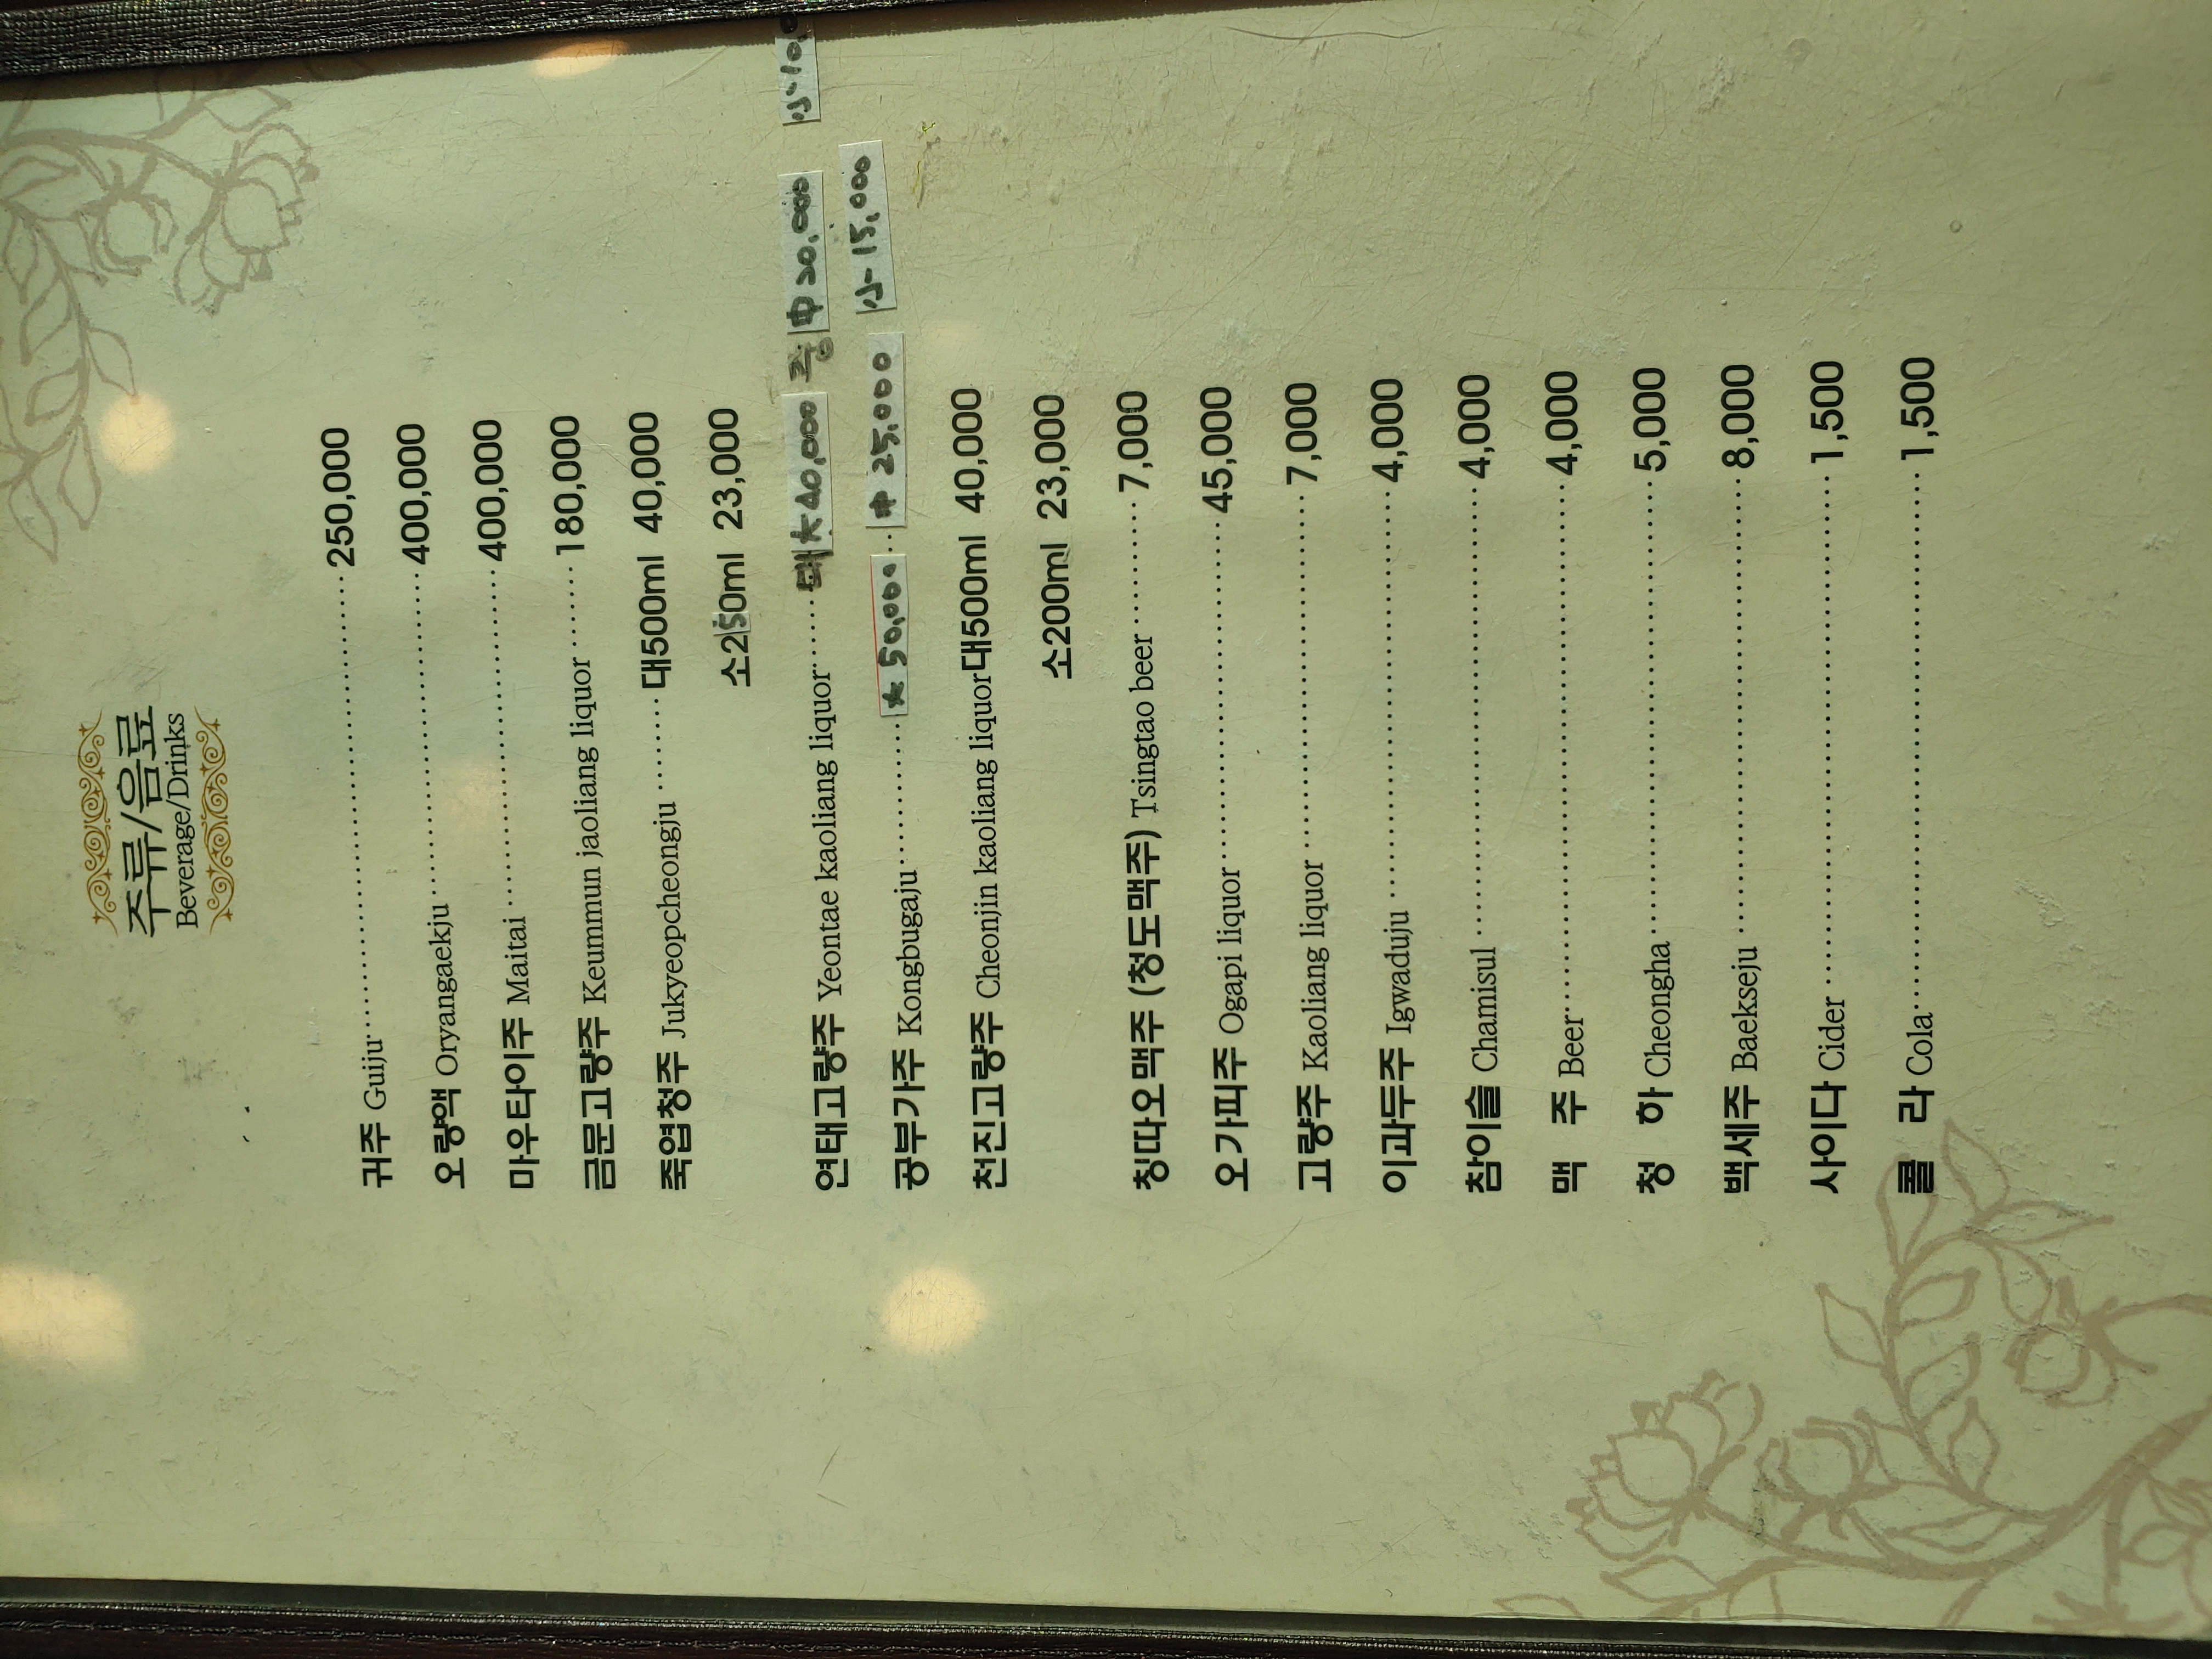 주류/음료
Beverage/Drinks
귀주 Guiju 250,000
오량액 Oryangaekju 400,000
마우타이주 Maitai 400,000
금문고량주 Keummun jaoliang liquor 180,000
죽엽청주 Jukyeopcheongju 대500ml 40,000
소250ml 23,000
연태고량주 Yeontae kaoliang liquor 大 40,000 중 中 20,000 小-10,0
공부가주 Kongbugaju 大 50,000 中 25,000 小-15,000
천진고량주 Cheonjin kaoliang liquor 대500ml 40,000
소200ml 23,000
칭따오맥주 (청도맥주) Tsingtao beer 7,000
오가피주 Ogapi liquor 45,000
고량주 Kaoliang liquor 7,000
이과두주 Igwaduju 4,000
참이슬 Chamisul 4,000
맥 주 Beer 4,000
청 하 Cheongha 5,000
백세주 Baekseju 8,000
사이다 Cider 1,500
콜 라 Cola 1,500